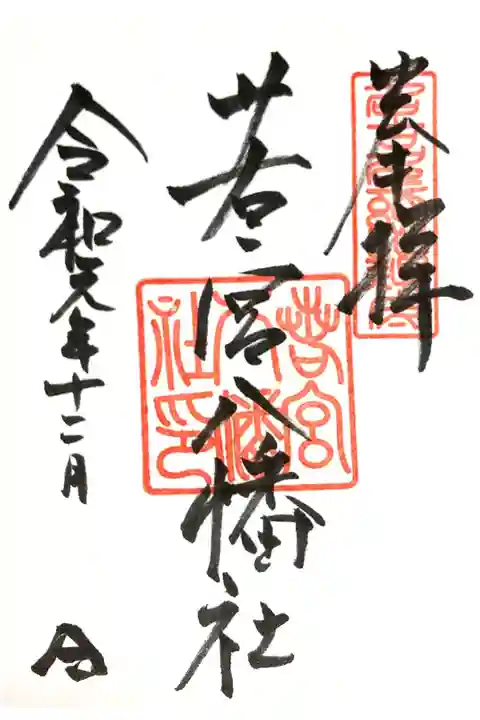 奉拝
若宮八幡社
若宮八幡社印
令和元年十二月 日